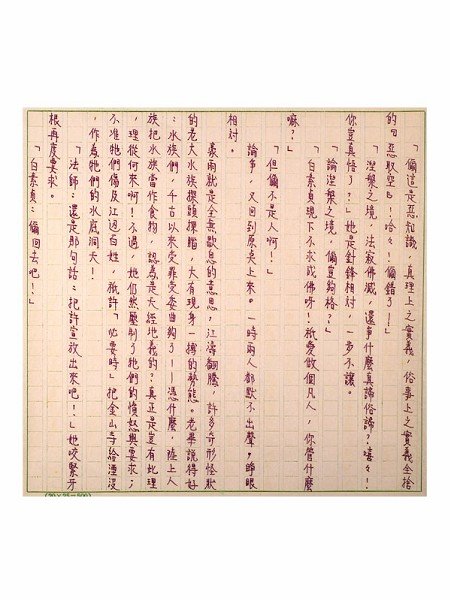 「偏這是惡知識,真理上之實義,俗事上之實義全捨
的『惡取空』!哈々!偏錯了!」
「涅槃之境,法寂佛滅,還事什麼真諦俗諦?嘻々!
你豈真悟了?」她是針鋒相對,一步不讓。
「論涅槃之境,偏豈夠格?」
「白素貞現下不求成佛呀!祇愛做個凡人,你管什麼
嘛?」
「但偏不是人啊!」
論事,又回到原点上來。一時兩人都默不出聲,睜眼
相対。
豪雨就是全無歇息的意思,江濤翻騰,許多奇形怪狀
的老大水族探頭探腦,大有現身一搏的勢態。老畢說得好
:水族們,千古以來受罪受委曲夠了——憑什麼,陸上人
族把水族當作食物,認為是天經地義的?真正是豈有此理
,理從何來啊!不過,她仍然壓制了牠們的憤怒與要求;
不准牠們傷及江边百姓,祇許「必要時」把金山寺給湮沒
,作為牠們的水底洞天!
「法師:還是那句話:把許宣放出來吧!」她咬緊牙
根再度要求。
「白素貞:偏回去吧!」
(20×25=500)